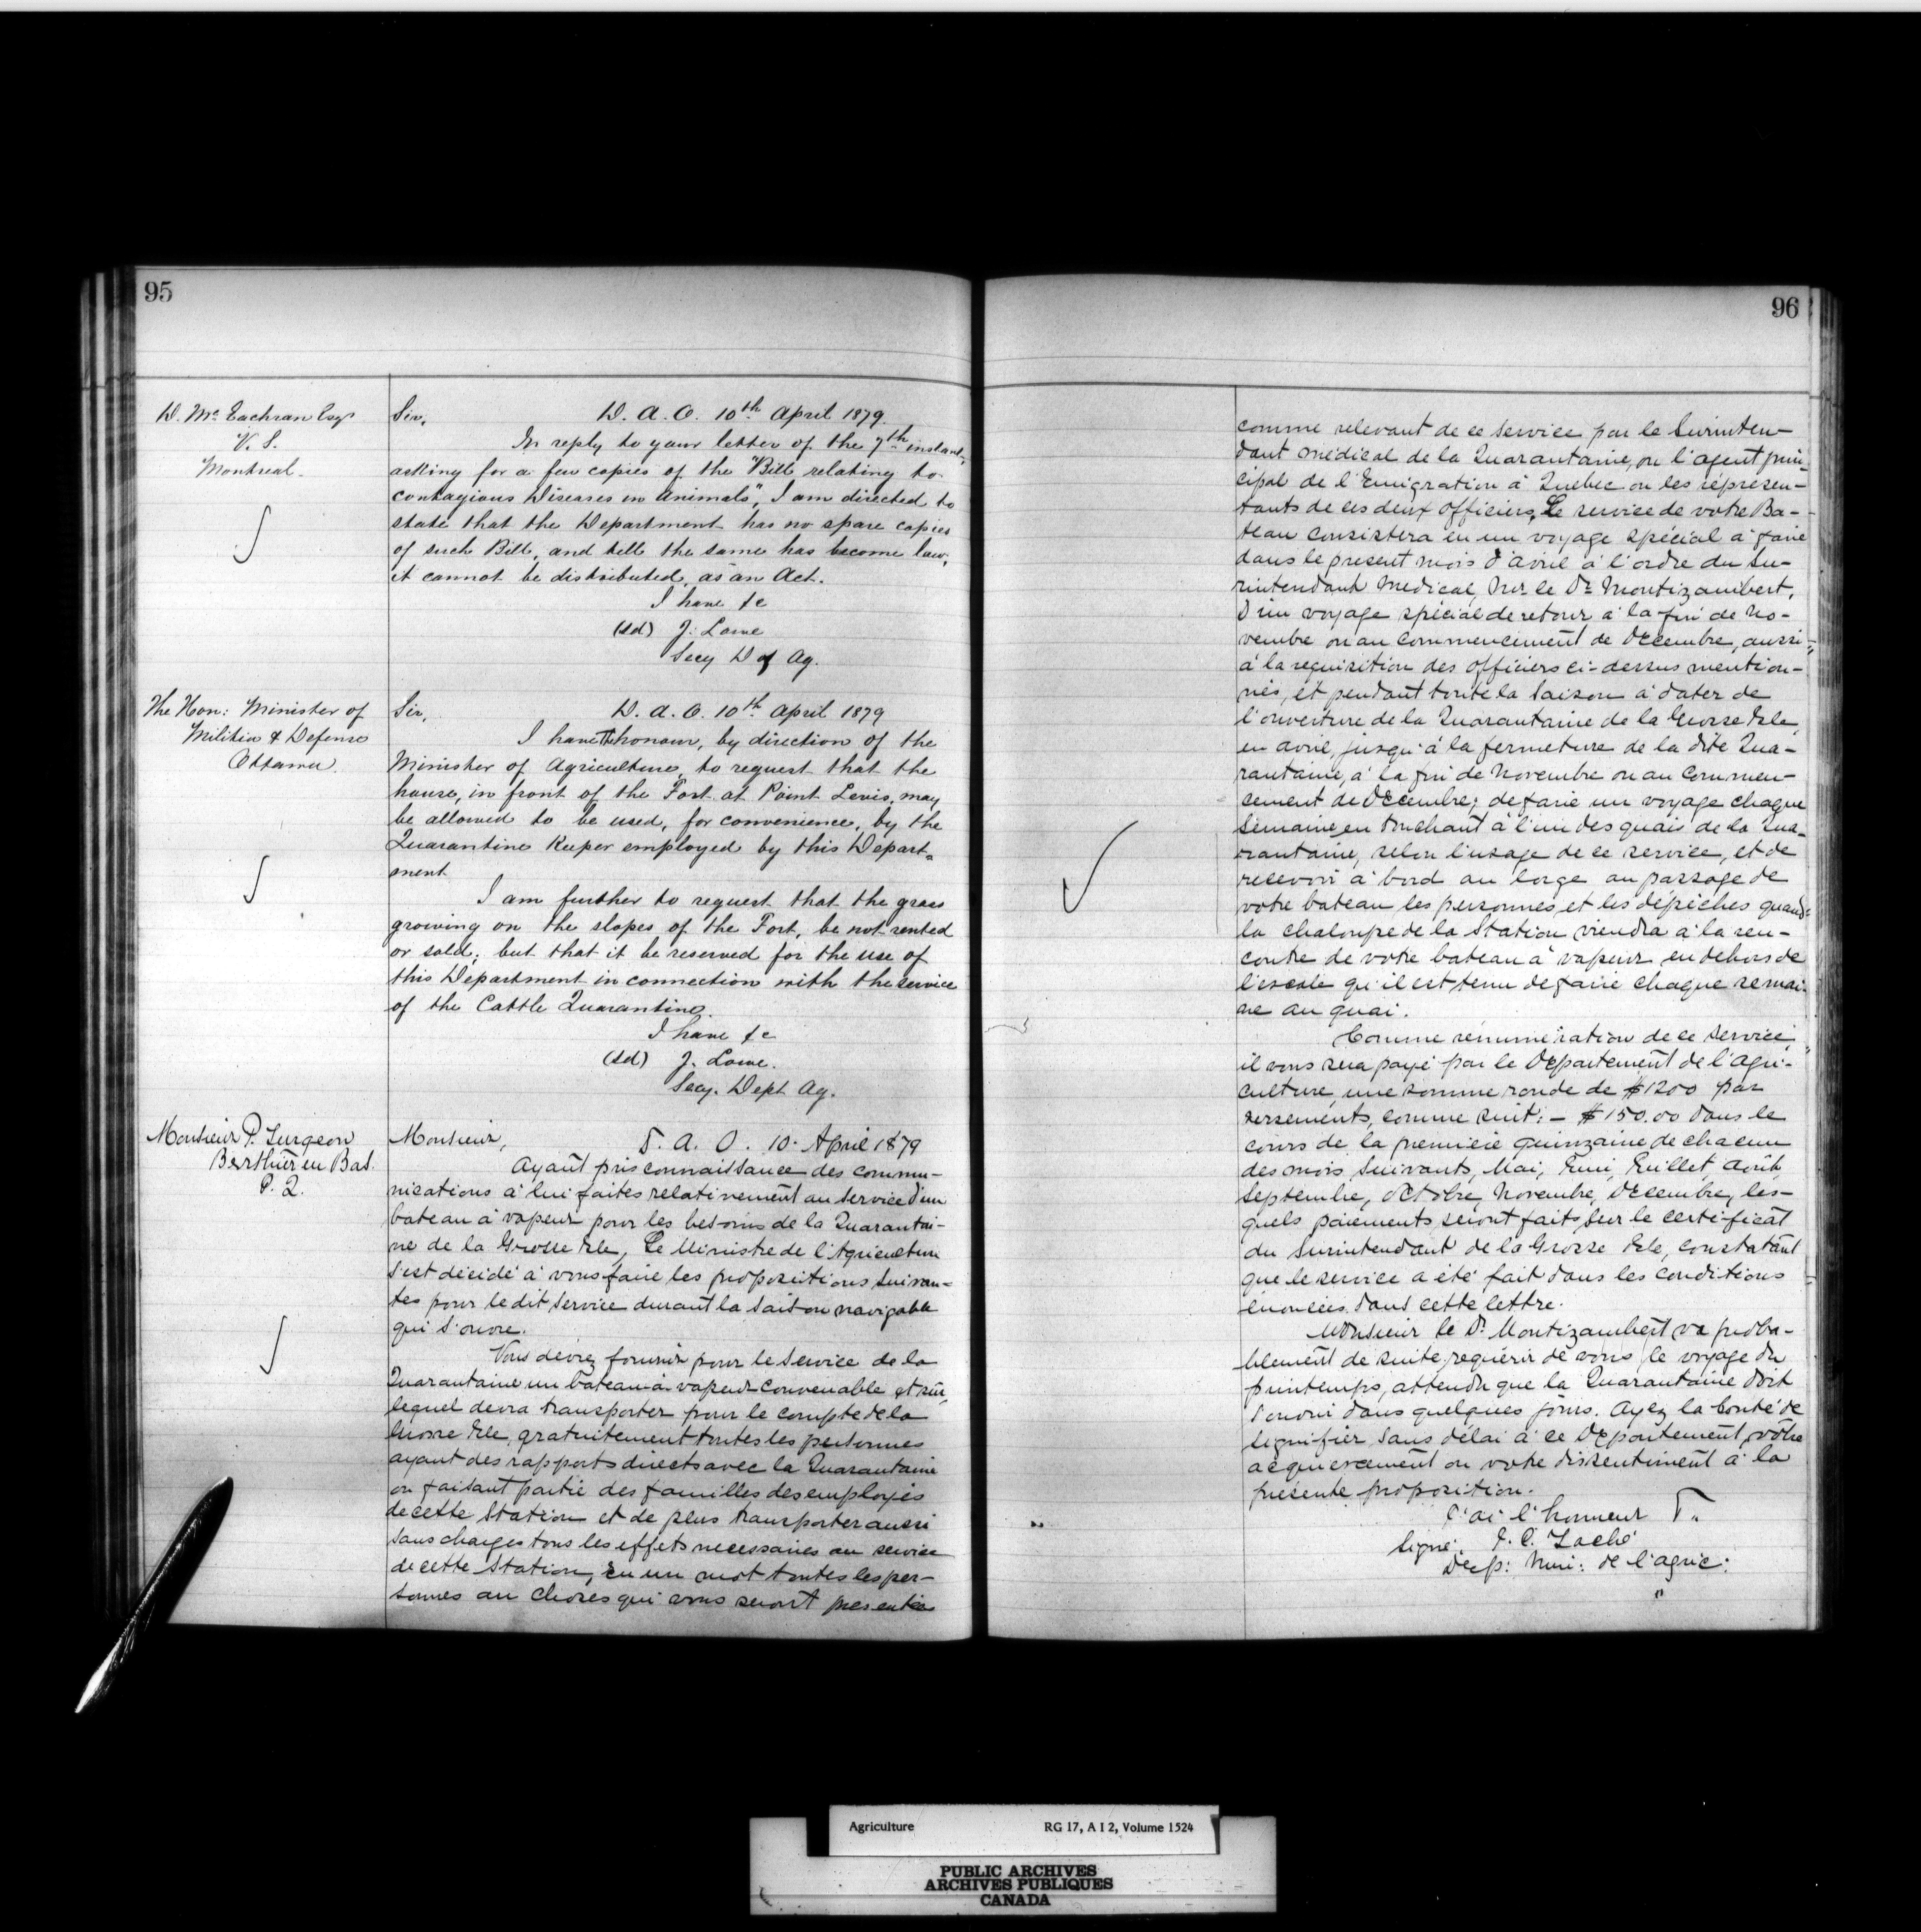 95
D. Mc Eachran Esqr
V. S.
Montreal.
Sir, D. A. O. 10th April 1879.
In reply to your letter of the 7th instant,
asking for a few copies of the "Bill relating to
contagious Diseases in animals", I am directed to
state that the Department has no spare copies
of such Bill, and till the same has become law,
it cannot be distributed, as an Act.
I have &c
(sd) J. Lowe
Secy D of Ag.
The Hon: Minister of
Militia & Defense
Ottawa.
Sir, D. A. O. 10th April 1879
I have the honour, by direction of the
Minister of Agriculture, to request that the
house, in front of the Fort at Point Levis, may
be allowed to be used, for convenience, by the
Quarantine Keeper employed by this Depart=
ment
I am further to request that the grass
growing on the slopes of the Fort, be not rented
or sold; but that it be reserved for the use of
this Department in connection with the service
of the Cattle Quarantine.
I have &c
(sd) J. Lowe.
Secy. Dept Ag.
Monsieur P. Surgeon
Berthier en Bas.
P. Q.
Monsieur, D. A. O. 10. April 1879
Ayant pris connaissance des commu-
nications à lui faites relativement au service d'un
bateau à vapeur pour les besoins de la Quarantai-
ne de la Grosse Isle, Le Ministre de l'Agriculture
s'est décidé à vous faire les propositions suivan-
tes pour le dit service durant la saison navigable
qui s'ouvre.
Vous devrez fournir pour le service de la
Quarantaine un bateau à vapeur convenable et sûr,
lequel devra transporter pour le compte de la
Grosse Isle, gratuitement toutes les personnes
ayant des rapports directs avec la Quarantaine
ou faisant partie des familles des employés
de cette Station et de plus transporter aussi
sans charges tous les effets necessaires au service
de cette Station, en un mot toutes les per-
sonnes ou choses qui vous seront presentées
96
comme relevant de ce service par le Surinten-
dant médical de la Quarantaine, ou l'agent prin-
cipal de l'Emigration à Quebec ou les représen-
tants de ces deux officiers. Le service de votre Ba-
teau consistera en un voyage spécial à faire
dans le present mois d'avril à l'ordre du Su-
rintendant Medical, Mr. le Dr. Montizambert,
D'un voyage spécial de retour à la fin de No-
vembre ou au commencement de Décembre, aussi
à la requisition des officiers ci-dessus mention-
nés, et pendant toute la saison à dater de
l'ouverture de la Quarantaine de la Grosse Isle,
en avril, jusqu'à la fermeture de la dite Qua-
rantaine, à la fin de Novembre ou au commen-
cement de Décembre; de faire un voyage chaque
semaine en touchant à l'un des quais de la Qua-
rantaine, selon l'usage de ce service, et de
recevoir à bord au large au passage de
votre bateau les personnes et les dépêches quand
la chaloupe de la Station viendra à la ren-
contre de votre bateau à vapeur en dehors de
l'escale qu'il est tenu de faire chaque semai-
ne au quai.
Comme rénumération de ce service,
il vous sera payé par le Département de l'Agri-
culture, une somme ronde de $1200 par
versements, comme suit: – $150.00 dans le
cours de la première quinzaine de chacun
des mois suivants, Mai, Juin, Juillet, Août
Septembre, Octobre, Novembre, Décembre, les-
quels paiements seront faits sur le certificat
du Surintendant de la Grosse Isle, constatant
que le service a été fait dans les conditions
énoncées dans cette lettre.
Monsieur le Dr Montizambert va proba-
blement de suite requérir de vous le voyage du
printemps, attendu que la Quarantaine doit
s'ouvrir dans quelques jours. Ayez la bonté de
signifier sans délai à ce Département, votre
acquiescement ou votre dissentiment à la
présente proposition.
J'ai l'honneur
Signé: J. C. Taché
Dep: Min: de l'agric:
Agriculture RG 17, A I 2, Volume 1524
PUBLIC ARCHIVES
ARCHIVES PUBLIQUES
CANADA